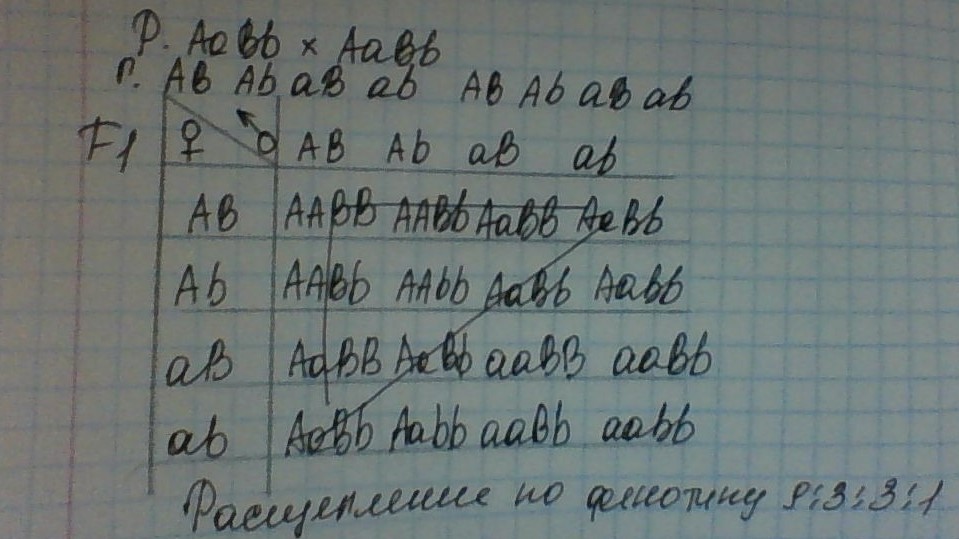 P. AaBb × AaBb
г. AB Ab aB ab AB Ab aB ab
F1 ♀ ♂ AB Ab aB ab
AB AABB AABb AaBB AaBb
Ab AABb AAbb AaBb Aabb
aB AaBB AaBb aaBB aaBb
ab AaBb Aabb aaBb aabb
Расщепление по фенотипу 9:3:3:1